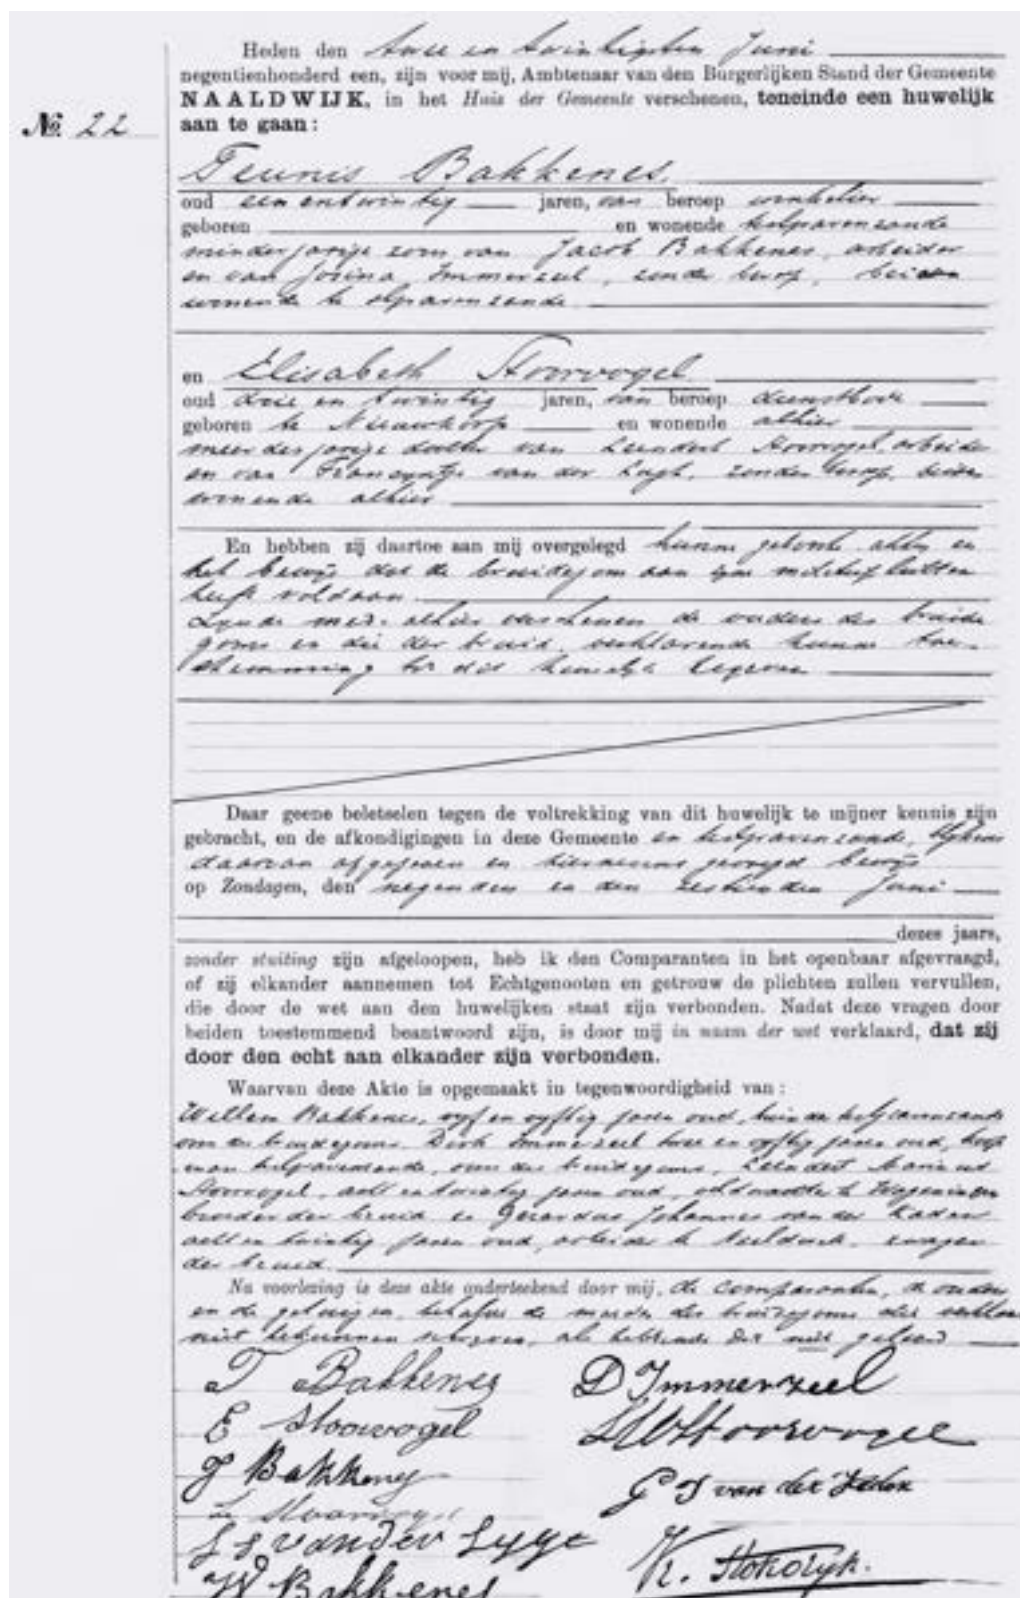 Heden den twee en twintigsten Juni
negentienhonderd een, zijn voor mij, Ambtenaar van den Burgerlijken Stand der Gemeente
NAALDWIJK, in het Huis der Gemeente verschenen, teneinde een huwelijk
№ 22
aan te gaan:
Teunis Bakkenes
oud een en twintig jaren, van beroep winkelier
geboren en wonende te 's Gravenzande
minderjarige zoon van Jacob Bakkenes, arbeider
en van Josina Immerzeel, zonder beroep, beiden
wonende te 's Gravenzande
en Elisabeth Stoorvogel
oud drie en twintig jaren, van beroep dienstbode
geboren te en wonende alhier
meerderjarige dochter van Leendert Stoorvogel, arbeider
en van van der zonder beroep, beiden
wonende alhier
En hebben zij daartoe aan mij overgelegd hunne geboorte akten en
het bewijs dat de bruidegom aan zijn militaire
heeft voldaan
alhier verschenen de ouders des bruide
goms en die der bruid, verklarende hunne toe-
stemming tot dit huwelijk te geven
Daar geene beletselen tegen de voltrekking van dit huwelijk te mijner kennis zijn
gebracht, en de afkondigingen in deze Gemeente en te 's Gravenzande, blijkens
daarvan afgegeven en hiernevens gevoegd bewijs
op Zondagen, den negenden en den zestienden Juni
dezes jaars,
zonder stuiting zijn afgeloopen, heb ik den Comparanten in het openbaar afgevraagd,
of zij elkander aannemen tot Echtgenooten en getrouw de plichten zullen vervullen,
die door de wet aan den huwelijken staat zijn verbonden. Nadat deze vragen door
beiden toestemmend beantwoord zijn, is door mij in naam der wet verklaard, dat zij
door den echt aan elkander zijn verbonden.
Waarvan deze Akte is opgemaakt in tegenwoordigheid van:
Willem Bakkenes, vijf en vijftig jaren oud, te 's Gravenzande
oom des bruidegoms, Dirk Immerzeel twee en vijftig jaren oud, koop
man te 's Gravenzande, oom des bruidegoms, Leendert
Stoorvogel, acht en twintig jaren oud, te Wageningen
broeder der bruid en Gerardus Johannes van der
acht en twintig jaren oud, arbeider te zwager
der bruid.
Na voorlezing is deze akte onderteekend door mij, de comparanten, de ouders
en de getuigen, behalve de moeder des bruidegoms die verklaarde
niet te kunnen schrijven, als hebbende dit niet geleerd
T Bakkenes D Immerzeel
E Stoorvogel Stoorvogel
J Bakkenes G J van der
van der Lugt
W Bakkenes K. Stokdijk.